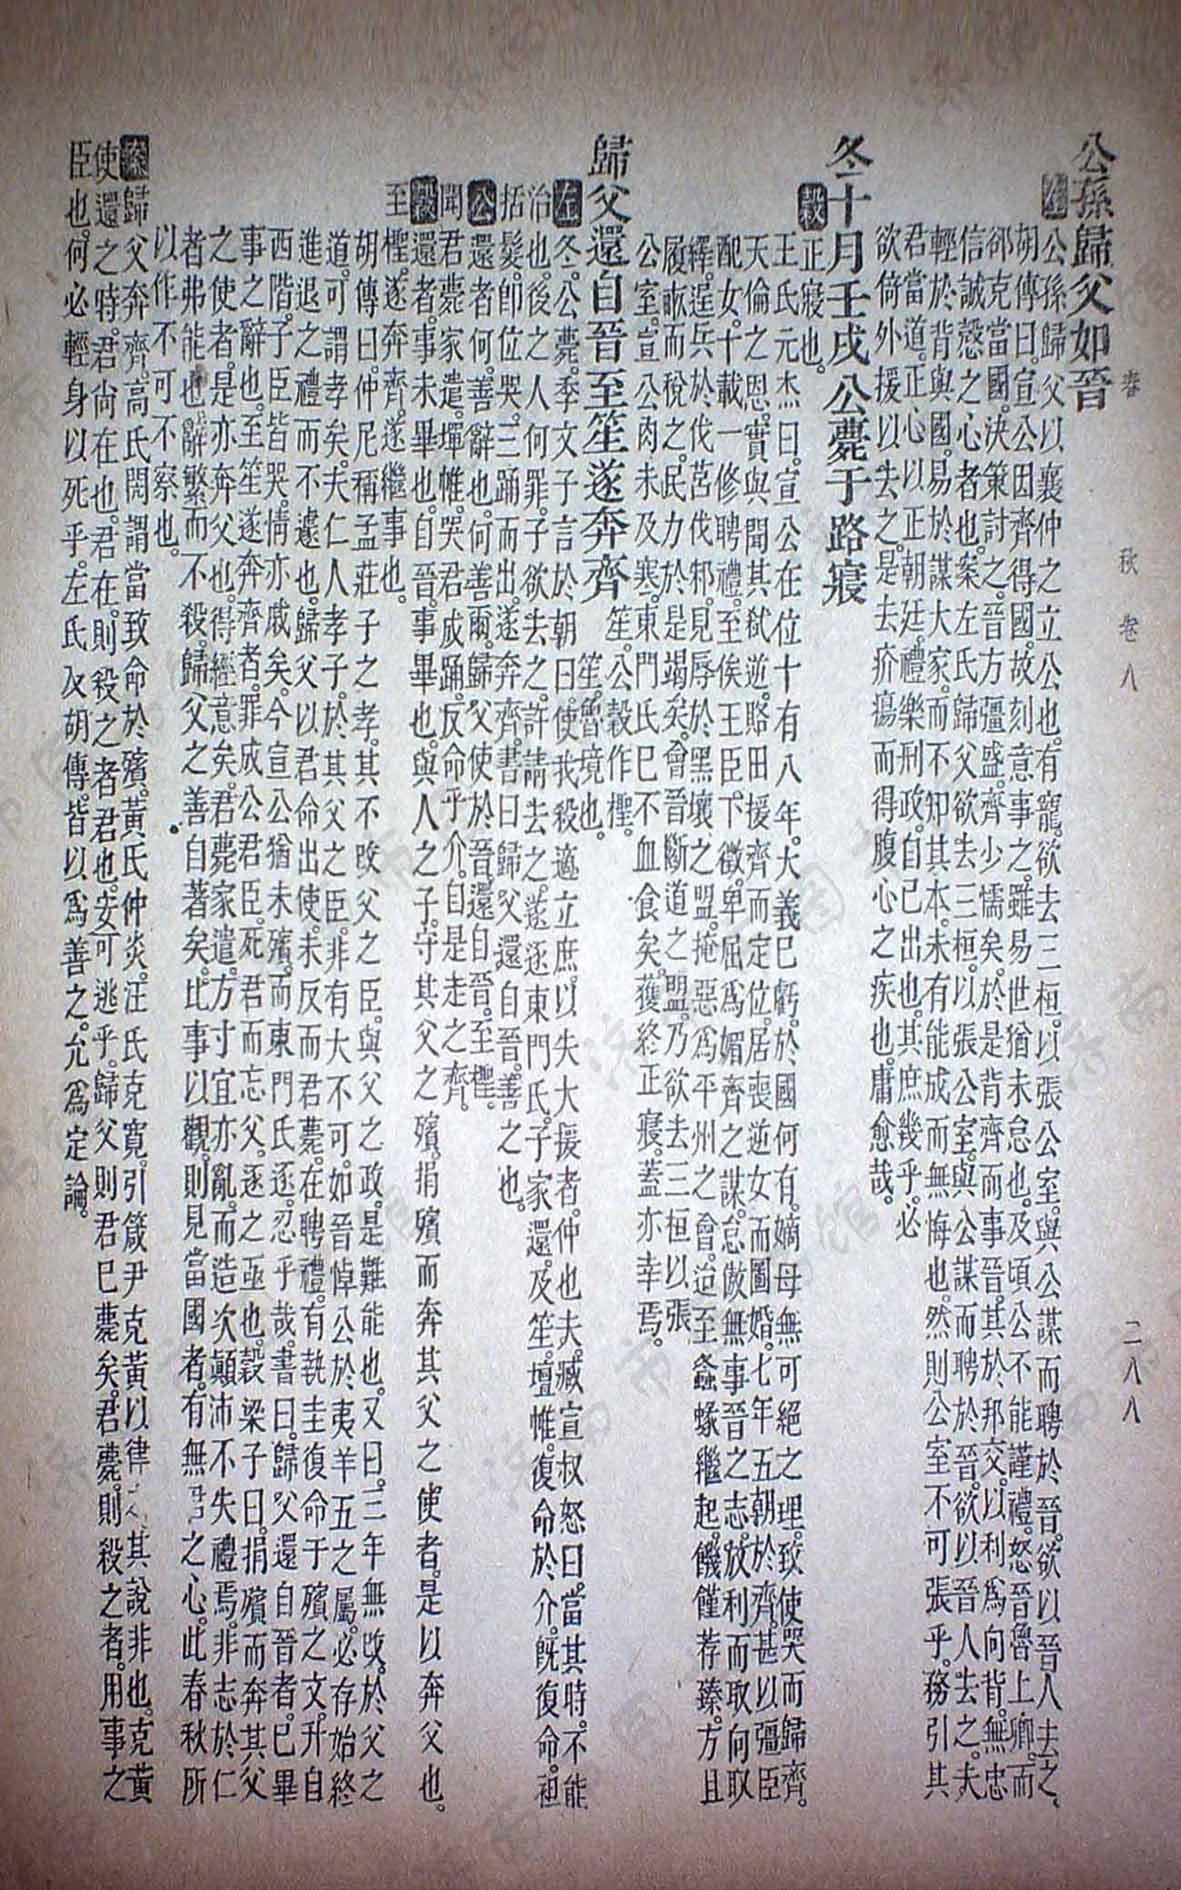 春　秋　卷八　二八八
公孫歸父如晉
左公孫歸父以襄仲之立公也。有寵。欲去三桓。以張公室。與公謀而聘於晉。欲以晉人去之。
胡傳曰。宣公因齊得國。故刻意事之。雖易世猶未怠也。及頃公不能謹禮。怒晉魯上卿。而
郤克當國。決策討之。晉方彊盛。齊少懦矣。於是背齊而事晉。其於邦交。以利爲向背。無忠
信誠慤之心者也。案左氏歸父欲去三桓。以張公室。與公謀而聘於晉。欲以晉人去之。夫
輕於背與國。易於謀大家。而不知其本。未有能成而無悔也。然則公室不可張乎。務引其
君當道。正心以正朝廷。禮樂刑政。自己出也。其庶幾乎。必
欲倚外援以去之。是去疥瘍而得腹心之疾也。庸愈哉。
冬十月壬戌公薨于路寢
穀正寢也。
王氏元杰曰。宣公在位十有八年。大義已虧。於國何有。嫡母無可絕之理。致使哭而歸齊。
天倫之恩。實與聞其弒逆。賂田援齊而定位。居喪逆女而圖婚。七年五朝於齊。甚以彊臣
配女。十載一修聘禮。至俟王臣。下徵。卑屈爲媚齊之謀。怠傲無事晉之志。放利而取向取
繹。逞兵於伐莒伐邾。見辱於黑壤之盟。掩惡爲平州之會。迨至螽蝝繼起。饑饉荐臻。方且
履畝而稅之。民力於是竭矣。會晉斷道之盟。乃欲去三桓以張
公室。宣公肉未及寒。東門氏已不血食矣。獲終正寢。蓋亦幸焉。
歸父還自晉至笙遂奔齊
笙。公穀作檉。
笙。魯境也。
左冬。公薨。季文子言於朝曰。使我殺適立庶。以失大援者。仲也夫。臧宣叔怒曰。當其時。不能
治也。後之人何罪。子欲去之。許請去之。遂逐東門氏。子家還。及笙。壇帷。復命於介。旣復命。袒
括髮。卽位哭。三踊而出。遂奔齊。書曰歸父還自晉。善之也。
公還者何。善辭也。何善爾。歸父使於晉。還自晉。至檉。
聞君薨家遣。墠帷。哭君成踊。反命乎介。自是走之齊。
穀還者。事未畢也。自晉。事畢也。與人之子。守其父之殯。捐殯而奔其父之使者。是以奔父也。
至檉。遂奔齊。遂繼事也。
胡傳曰。仲尼稱孟莊子之孝。其不改父之臣。與父之政。是難能也。又曰。三年無改。於父之
道。可謂孝矣。夫仁人孝子。於其父之臣。非有大不可。如晉悼公於夷羊五之屬。必存始終
進退之禮而不遽也。歸父以君命出使。未反而君薨。在聘禮。有執圭復命于殯之文。升自
西階。子臣皆哭。情亦戚矣。今宣公猶未殯。而東門氏逐。忍乎哉。書曰。歸父還自晉者。已畢
事之辭也。至笙遂奔齊者。罪成公君臣。死君而忘父。逐之亟也。穀梁子曰。捐殯而奔其父
之使者。是亦奔父也。得經意矣。君薨家遣。方寸宜亦亂。而造次顛沛不失禮焉。非志於仁
者弗能也。辭繁而不殺。歸父之善自著矣。比事以觀。則見當國者。有無君之心。此春秋所
以作不可不察也。
案歸父奔齊。高氏閌謂當致命於殯。黃氏仲炎。汪氏克寬。引箴尹克黃以律之。其說非也。克黃
使還之時。君尙在也。君在。則殺之者君也。安可逃乎。歸父則君已薨矣。君薨。則殺之者。用事之
臣也。何必輕身以死乎。左氏及胡傳。皆以爲善之。允爲定論。